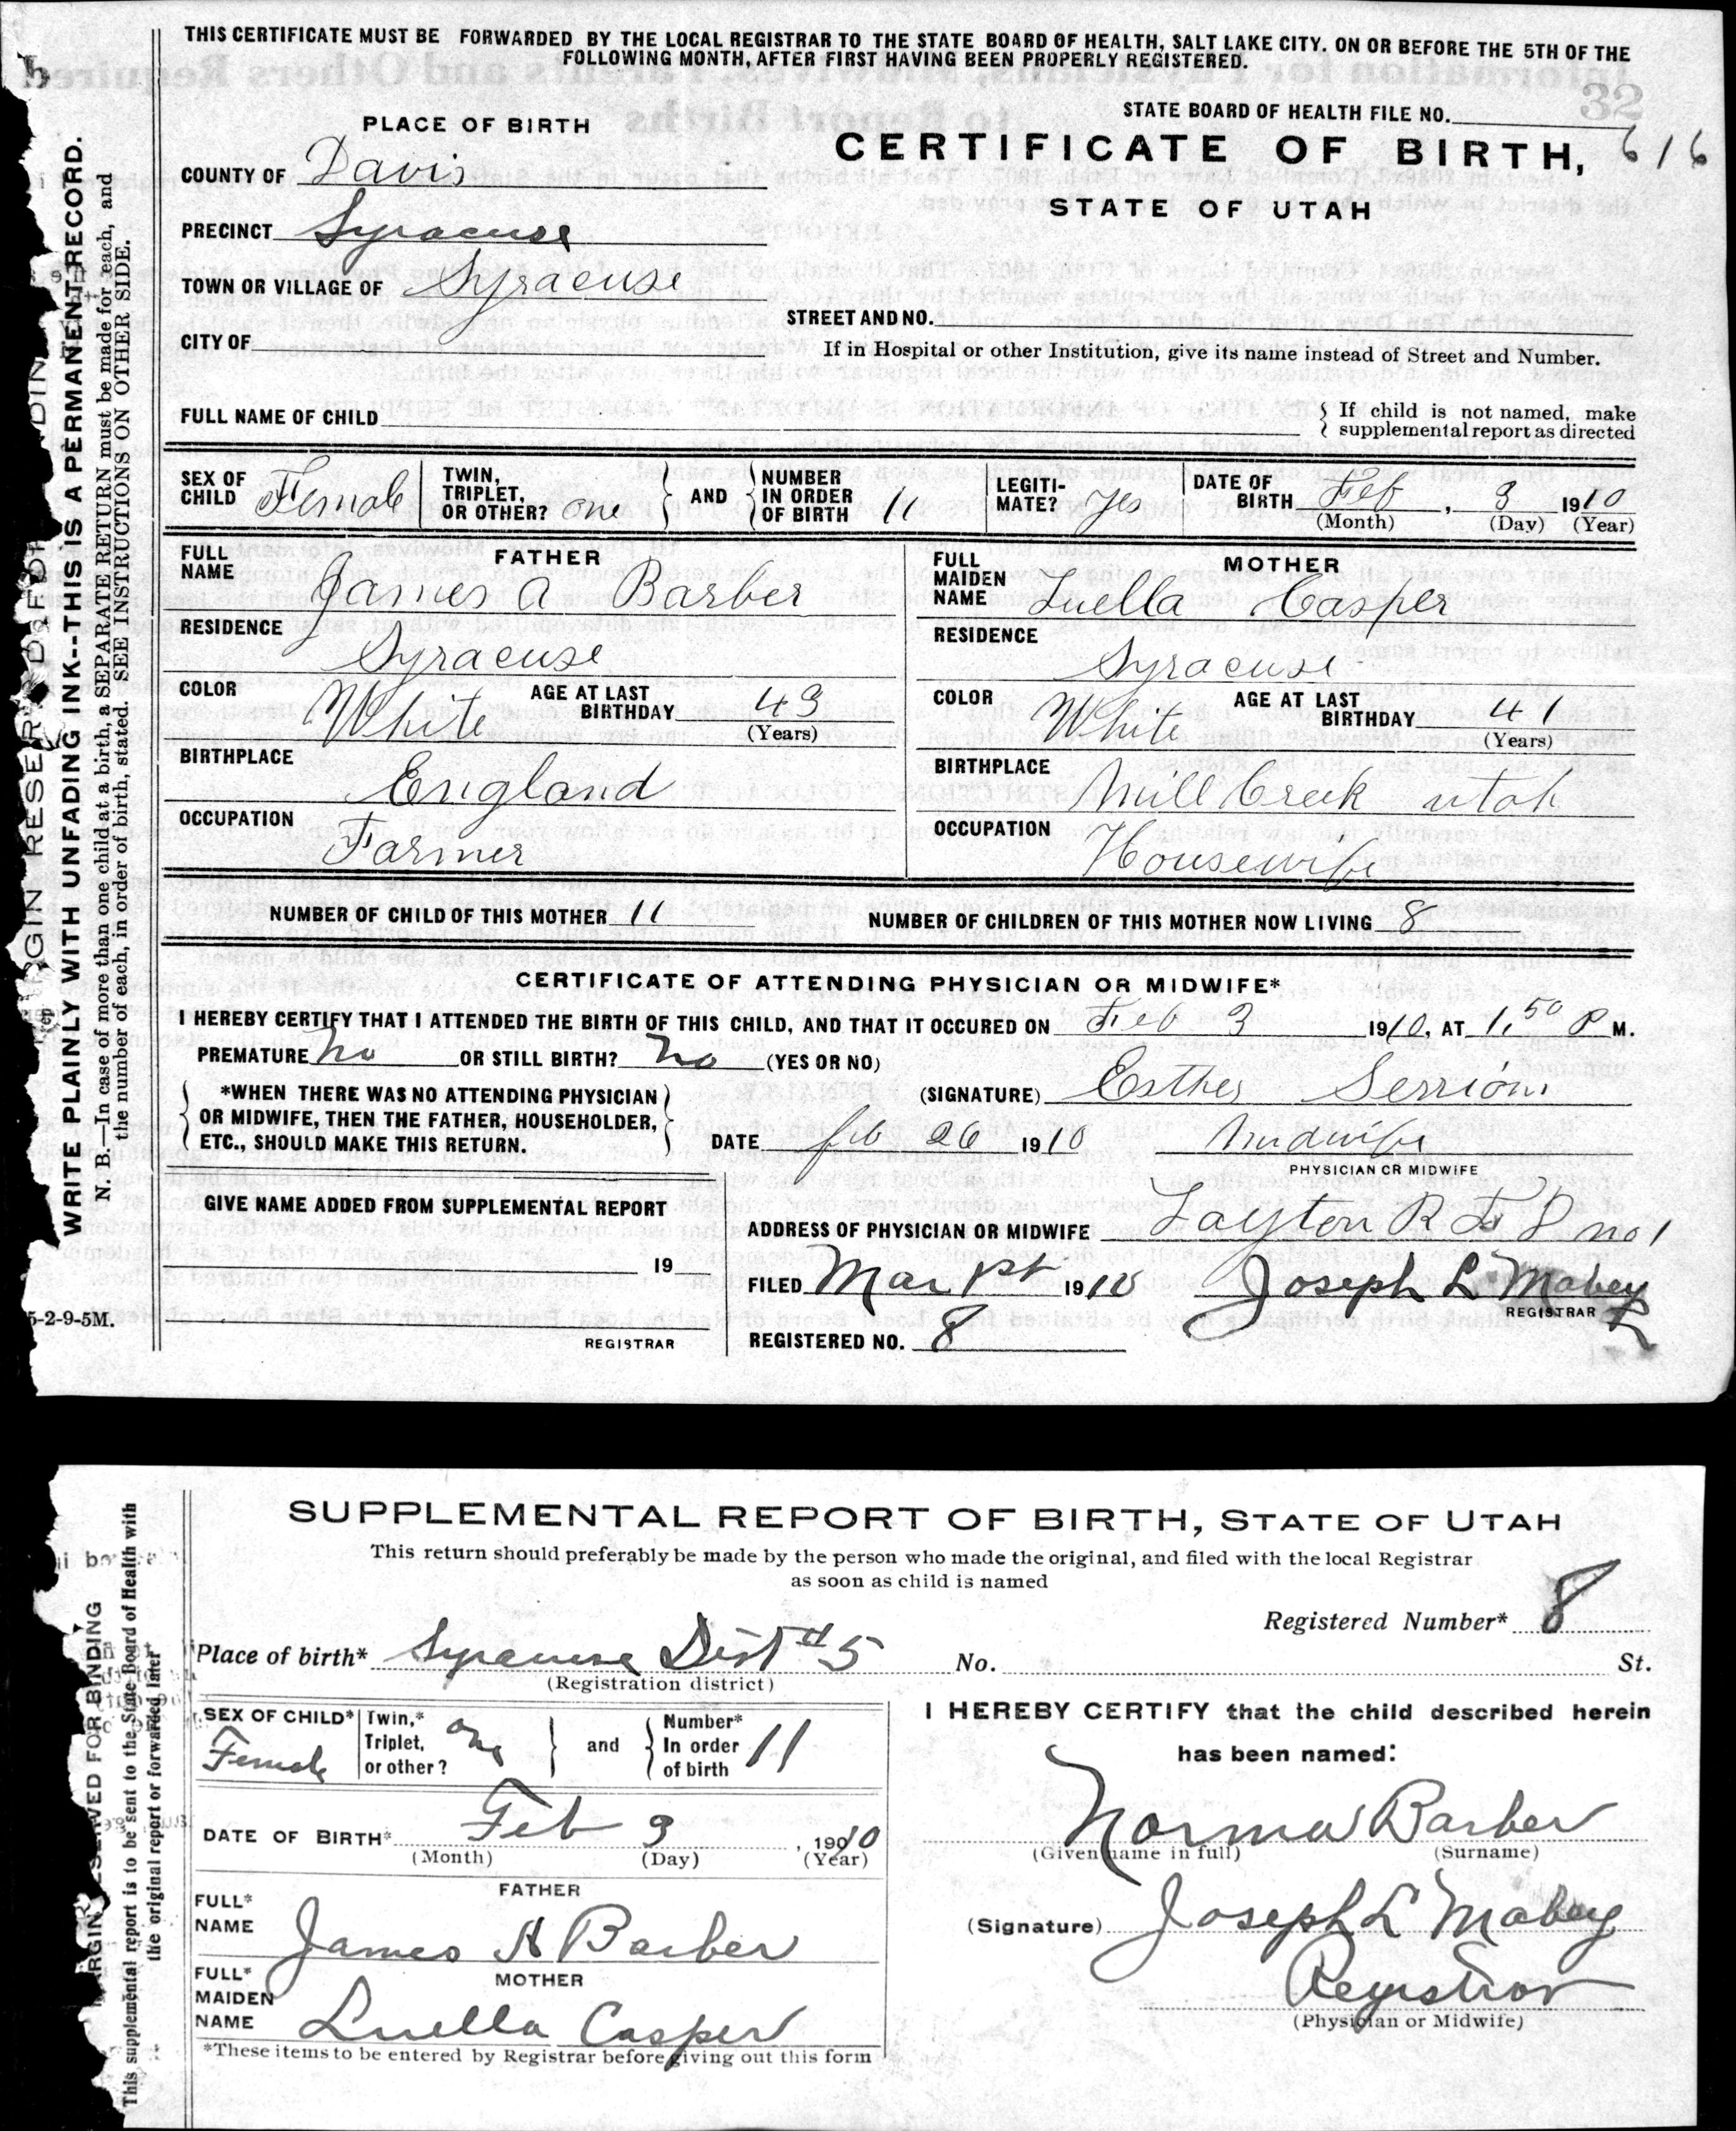 THIS CERTIFICATE MUST BE FORWARDED BY THE LOCAL REGISTRAR TO THE STATE BOARD OF HEALTH, SALT LAKE CITY. ON OR BEFORE THE 5TH OF THE
FOLLOWING MONTH, AFTER FIRST HAVING BEEN PROPERLY REGISTERED.
32
STATE BOARD OF HEALTH FILE NO.
616
PLACE OF BIRTH
CERTIFICATE OF BIRTH,
STATE OF UTAH
COUNTY OF Davis
PRECINCT Syracuse
TOWN OR VILLAGE OF Syracuse
STREET AND NO.
CITY OF
If in Hospital or other Institution, give its name instead of Street and Number.
FULL NAME OF CHILD
If child is not named, make
supplemental report as directed
SEX OF CHILD Female
TWIN, TRIPLET, OR OTHER? one
AND
NUMBER IN ORDER OF BIRTH 11
LEGITIMATE? yes
DATE OF BIRTH Feb, 3 1910
(Month) (Day) (Year)
FATHER
FULL NAME James A Barber
RESIDENCE Syracuse
COLOR White AGE AT LAST BIRTHDAY 43
(Years)
BIRTHPLACE England
OCCUPATION Farmer
MOTHER
FULL MAIDEN NAME Luella Casper
RESIDENCE Syracuse
COLOR White AGE AT LAST BIRTHDAY 41
(Years)
BIRTHPLACE Mill Creek utah
OCCUPATION Housewife
NUMBER OF CHILD OF THIS MOTHER 11 NUMBER OF CHILDREN OF THIS MOTHER NOW LIVING 8
CERTIFICATE OF ATTENDING PHYSICIAN OR MIDWIFE*
I HEREBY CERTIFY THAT I ATTENDED THE BIRTH OF THIS CHILD, AND THAT IT OCCURED ON Feb 3 1910, AT 1.50 P M.
PREMATURE no OR STILL BIRTH? no (YES OR NO)
*WHEN THERE WAS NO ATTENDING PHYSICIAN
OR MIDWIFE, THEN THE FATHER, HOUSEHOLDER,
ETC., SHOULD MAKE THIS RETURN.
(SIGNATURE) Esther
DATE feb 26 1910 Midwife
PHYSICIAN OR MIDWIFE
GIVE NAME ADDED FROM SUPPLEMENTAL REPORT
19
REGISTRAR
ADDRESS OF PHYSICIAN OR MIDWIFE Layton R F D no 1
FILED Mar 1st 1910 Joseph L Mabey
REGISTRAR
REGISTERED NO. 8
5-2-9-5M.
WRITE PLAINLY WITH UNFADING INK--THIS IS A PERMANENT RECORD.
N. B.—In case of more than one child at a birth, a SEPARATE RETURN must be made for each, and
the number of each, in order of birth, stated. SEE INSTRUCTIONS ON OTHER SIDE.
SUPPLEMENTAL REPORT OF BIRTH, STATE OF UTAH
This return should preferably be made by the person who made the original, and filed with the local Registrar
as soon as child is named
Registered Number* 8
Place of birth* Syracuse Dist #5 No. St.
(Registration district)
SEX OF CHILD* Female
Twin,* Triplet, or other? one
and
Number* In order of birth 11
DATE OF BIRTH* Feb 3, 1910
(Month) (Day) (Year)
FATHER
FULL* NAME James A Barber
MOTHER
FULL* MAIDEN NAME Luella Casper
*These items to be entered by Registrar before giving out this form
I HEREBY CERTIFY that the child described herein
has been named:
Norma Barber
(Given name in full) (Surname)
(Signature) Joseph L Mabey
Registrar
(Physician or Midwife)
RESERVED FOR BINDING
This supplemental report is to be sent to the State Board of Health with
the original report or forwarded later